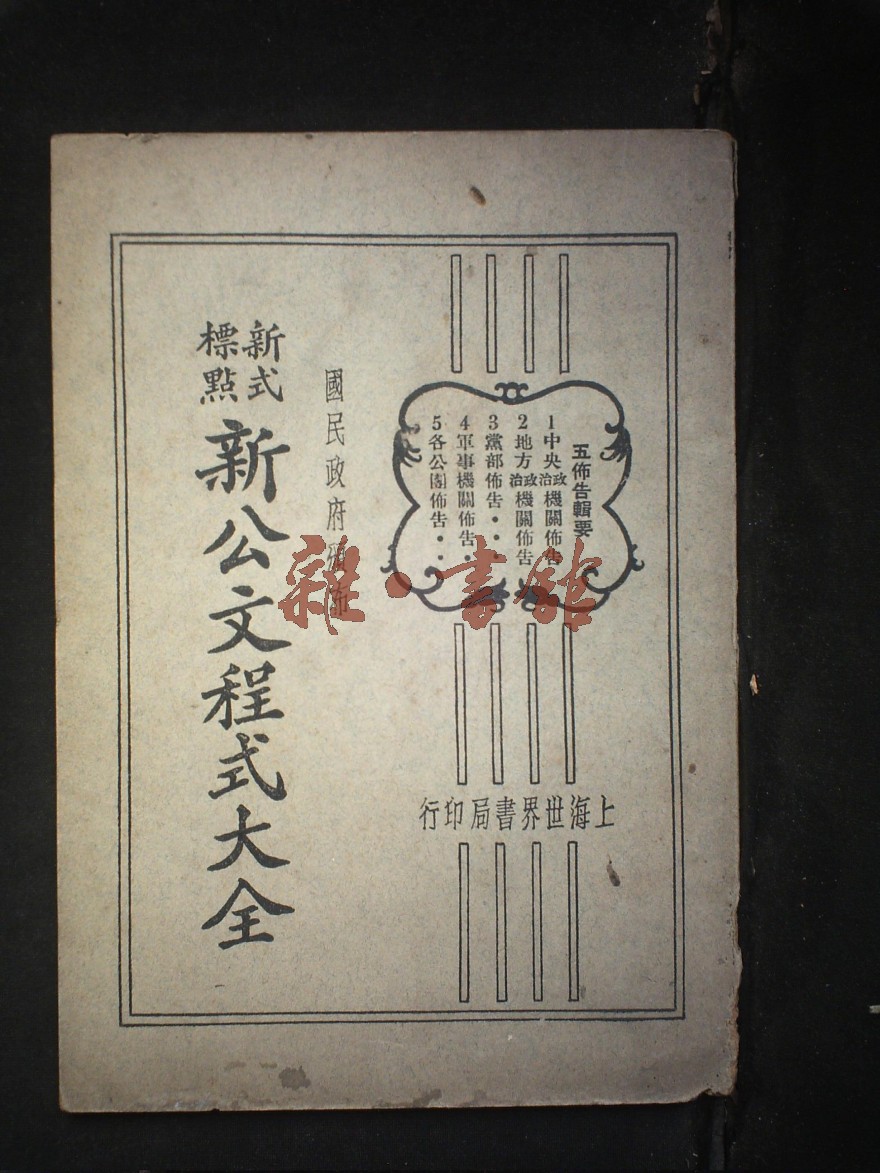 五佈告輯要
1中央政治機關佈告
2地方政治機關佈告
3黨部佈告・・・
4軍事機關佈告・
5各公團佈告・・
國民政府頒佈
新式標點
新公文程式大全
上海世界書局印行
雜・書館